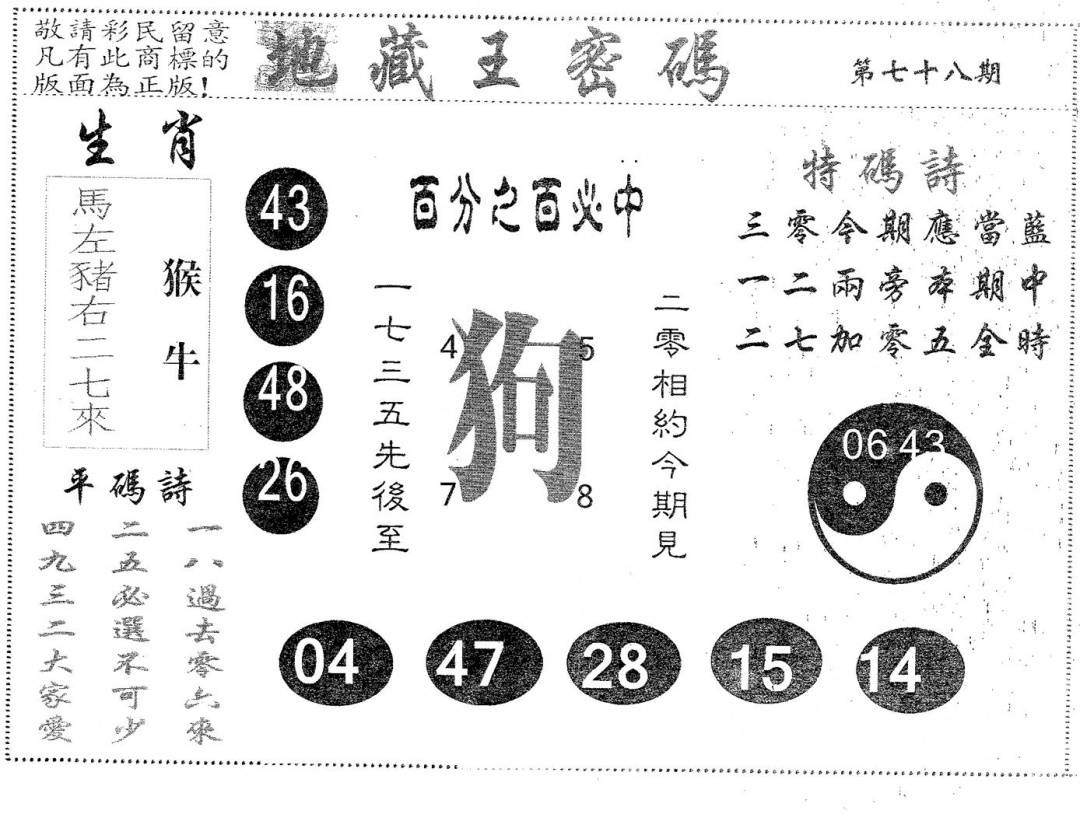 敬請彩民留意
凡有此商標的
版面為正版!
地藏王密碼
第七十八期
生肖
馬左豬右二七來
猴牛
43
16
48
26
百分之百必中
一七三五先後至
狗
4
5
7
8
二零相約今期見
特碼詩
三零今期應當藍
一二兩旁本期中
二七加零五全時
06 43
平碼詩
一八過去零六來
二五必選不可少
四九三二大家愛
04
47
28
15
14